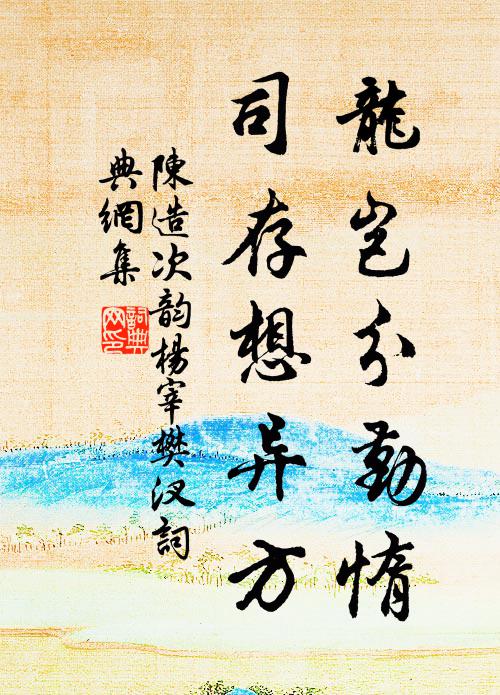 龍豈分勤惰
司存想异方
陳造次韵楊宰樊汊詞
典網集
詞典
网印